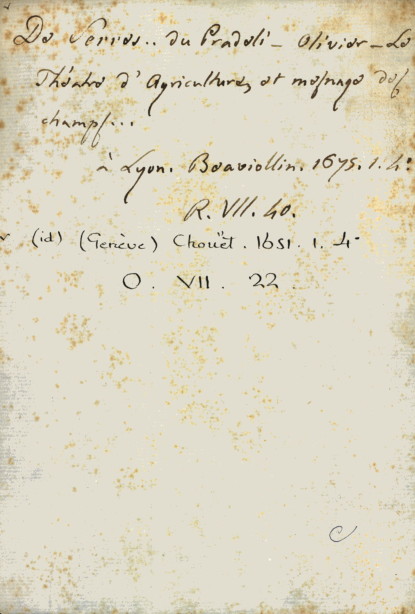 De Serres.. du Pradeli - Olivier - Le
Théatre d'Agriculture, et mesnage des
champs...
à Lyon. Beaviollin. 1675. 1. 4°.
R. VII. 40.
(id) (Genève) Chouët. 1651. 1. 4°
O. VII. 22.